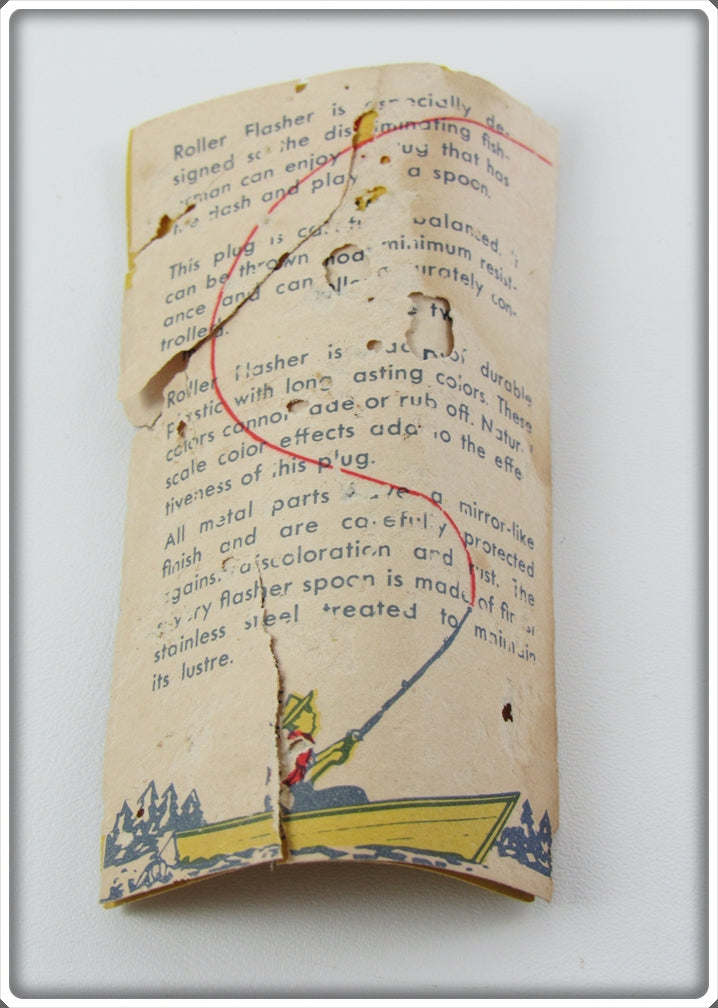 Roller Flasher is especially de-
signed so the discriminating fish-
erman can enjoy plug that has
the flash and play a spoon.
This plug is balanced. It
can be thrown minimum resist-
ance and can accurately con-
trolled.
Roller Flasher is of durable
Plastic with long lasting colors. These
colors cannot fade or rub off. Natur
scale color effects add to the effe
tiveness of this plug.
All metal parts have a mirror-like
finish and are carefully protected
against discoloration and rust. The
flasher spoon is made of finest
stainless steel treated to maintain
its lustre.